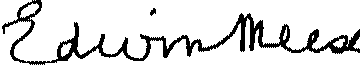 Edwin Meese